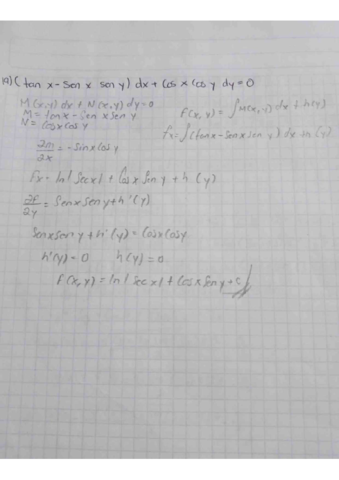 12) (tan x - Sen x sen y) dx + Cos x Cos y dy = 0
M(x,y) dx + N(x,y) dy = 0
M = tan x - Sen x sen y
N = Cos x Cos y
f(x,y) = ∫M(x,y) dx + h(y)
fx = ∫(tan x - sen x sen y) dx + h(y)
∂m/∂x = -Sin x Cos y
Fx = ln |Sec x| + Cos x Sen y + h (y)
∂f/∂y = Sen x sen y + h'(y)
Sen x sen y + h'(y) = Cos x Cos y
h'(y) = 0 h(y) = 0
F(x,y) = ln | sec x | + Cos x sen y + c